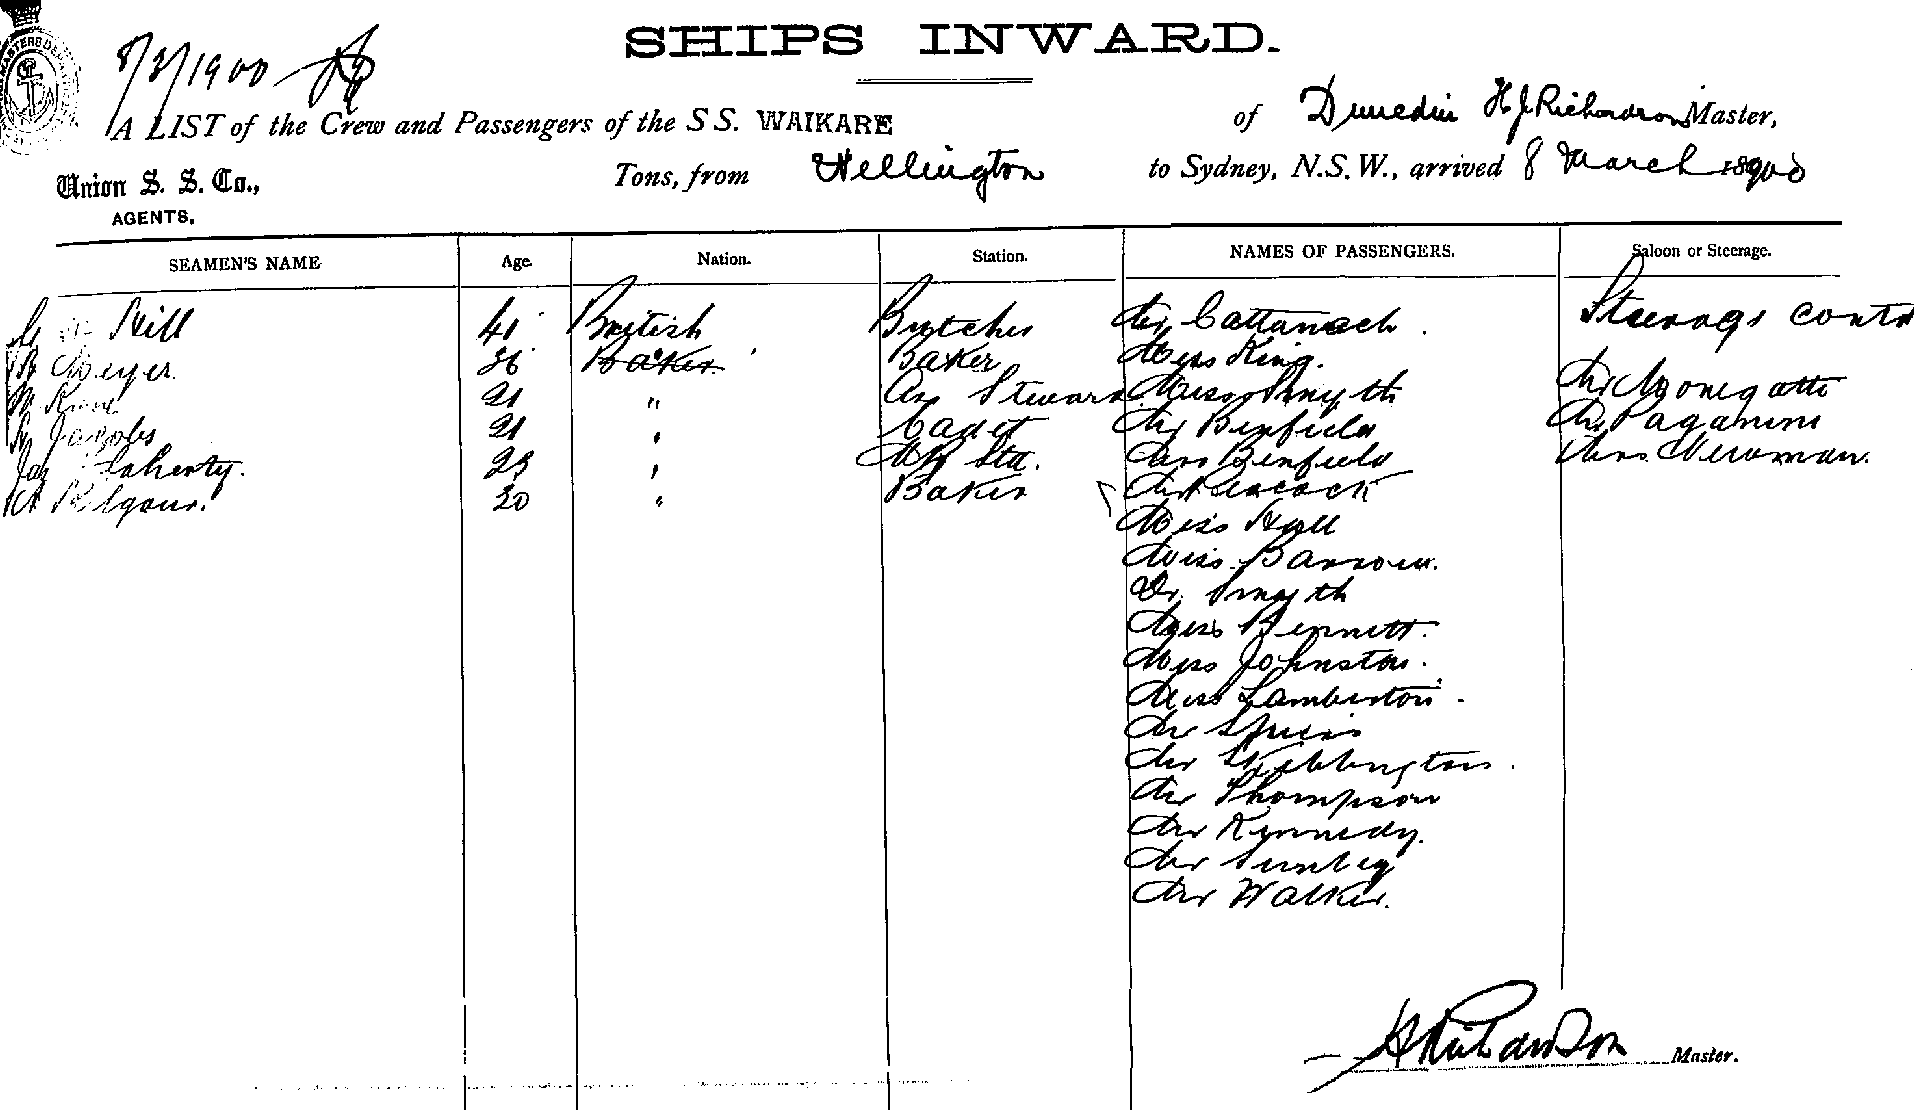 SHIPS INWARD.
8/3/1900
A LIST of the Crew and Passengers of the S S. WAIKARE of Dunedin H J Richardson Master,
Union S. S. Co., Tons, from Wellington to Sydney, N.S.W., arrived 8 March 1900
AGENTS.
SEAMEN'S NAME Age. Nation. Station. NAMES OF PASSENGERS. Saloon or Steerage.
Hill 41 British Butcher Mr Cattanach Steerage contd
Meyer 36 Baker Baker Miss King.
21 " Steward Miss Smyth Mr
Jacobs 21 " Cadet Mr Benfield Mr Paganini
Jas Flaherty. 23 " Mrs Benfield Mrs Newman.
A Kilgour. 30 " Baker Mr Peacock
Miss Hull
Miss Barrow.
Dr. Smyth
Miss Bennett.
Miss Johnston.
Miss Lamberton.
Mr Speirs
Mr Skibbington.
Mr Thompson
Mr Kennedy.
Mr
Mr Walker.
H J Richardson Master.